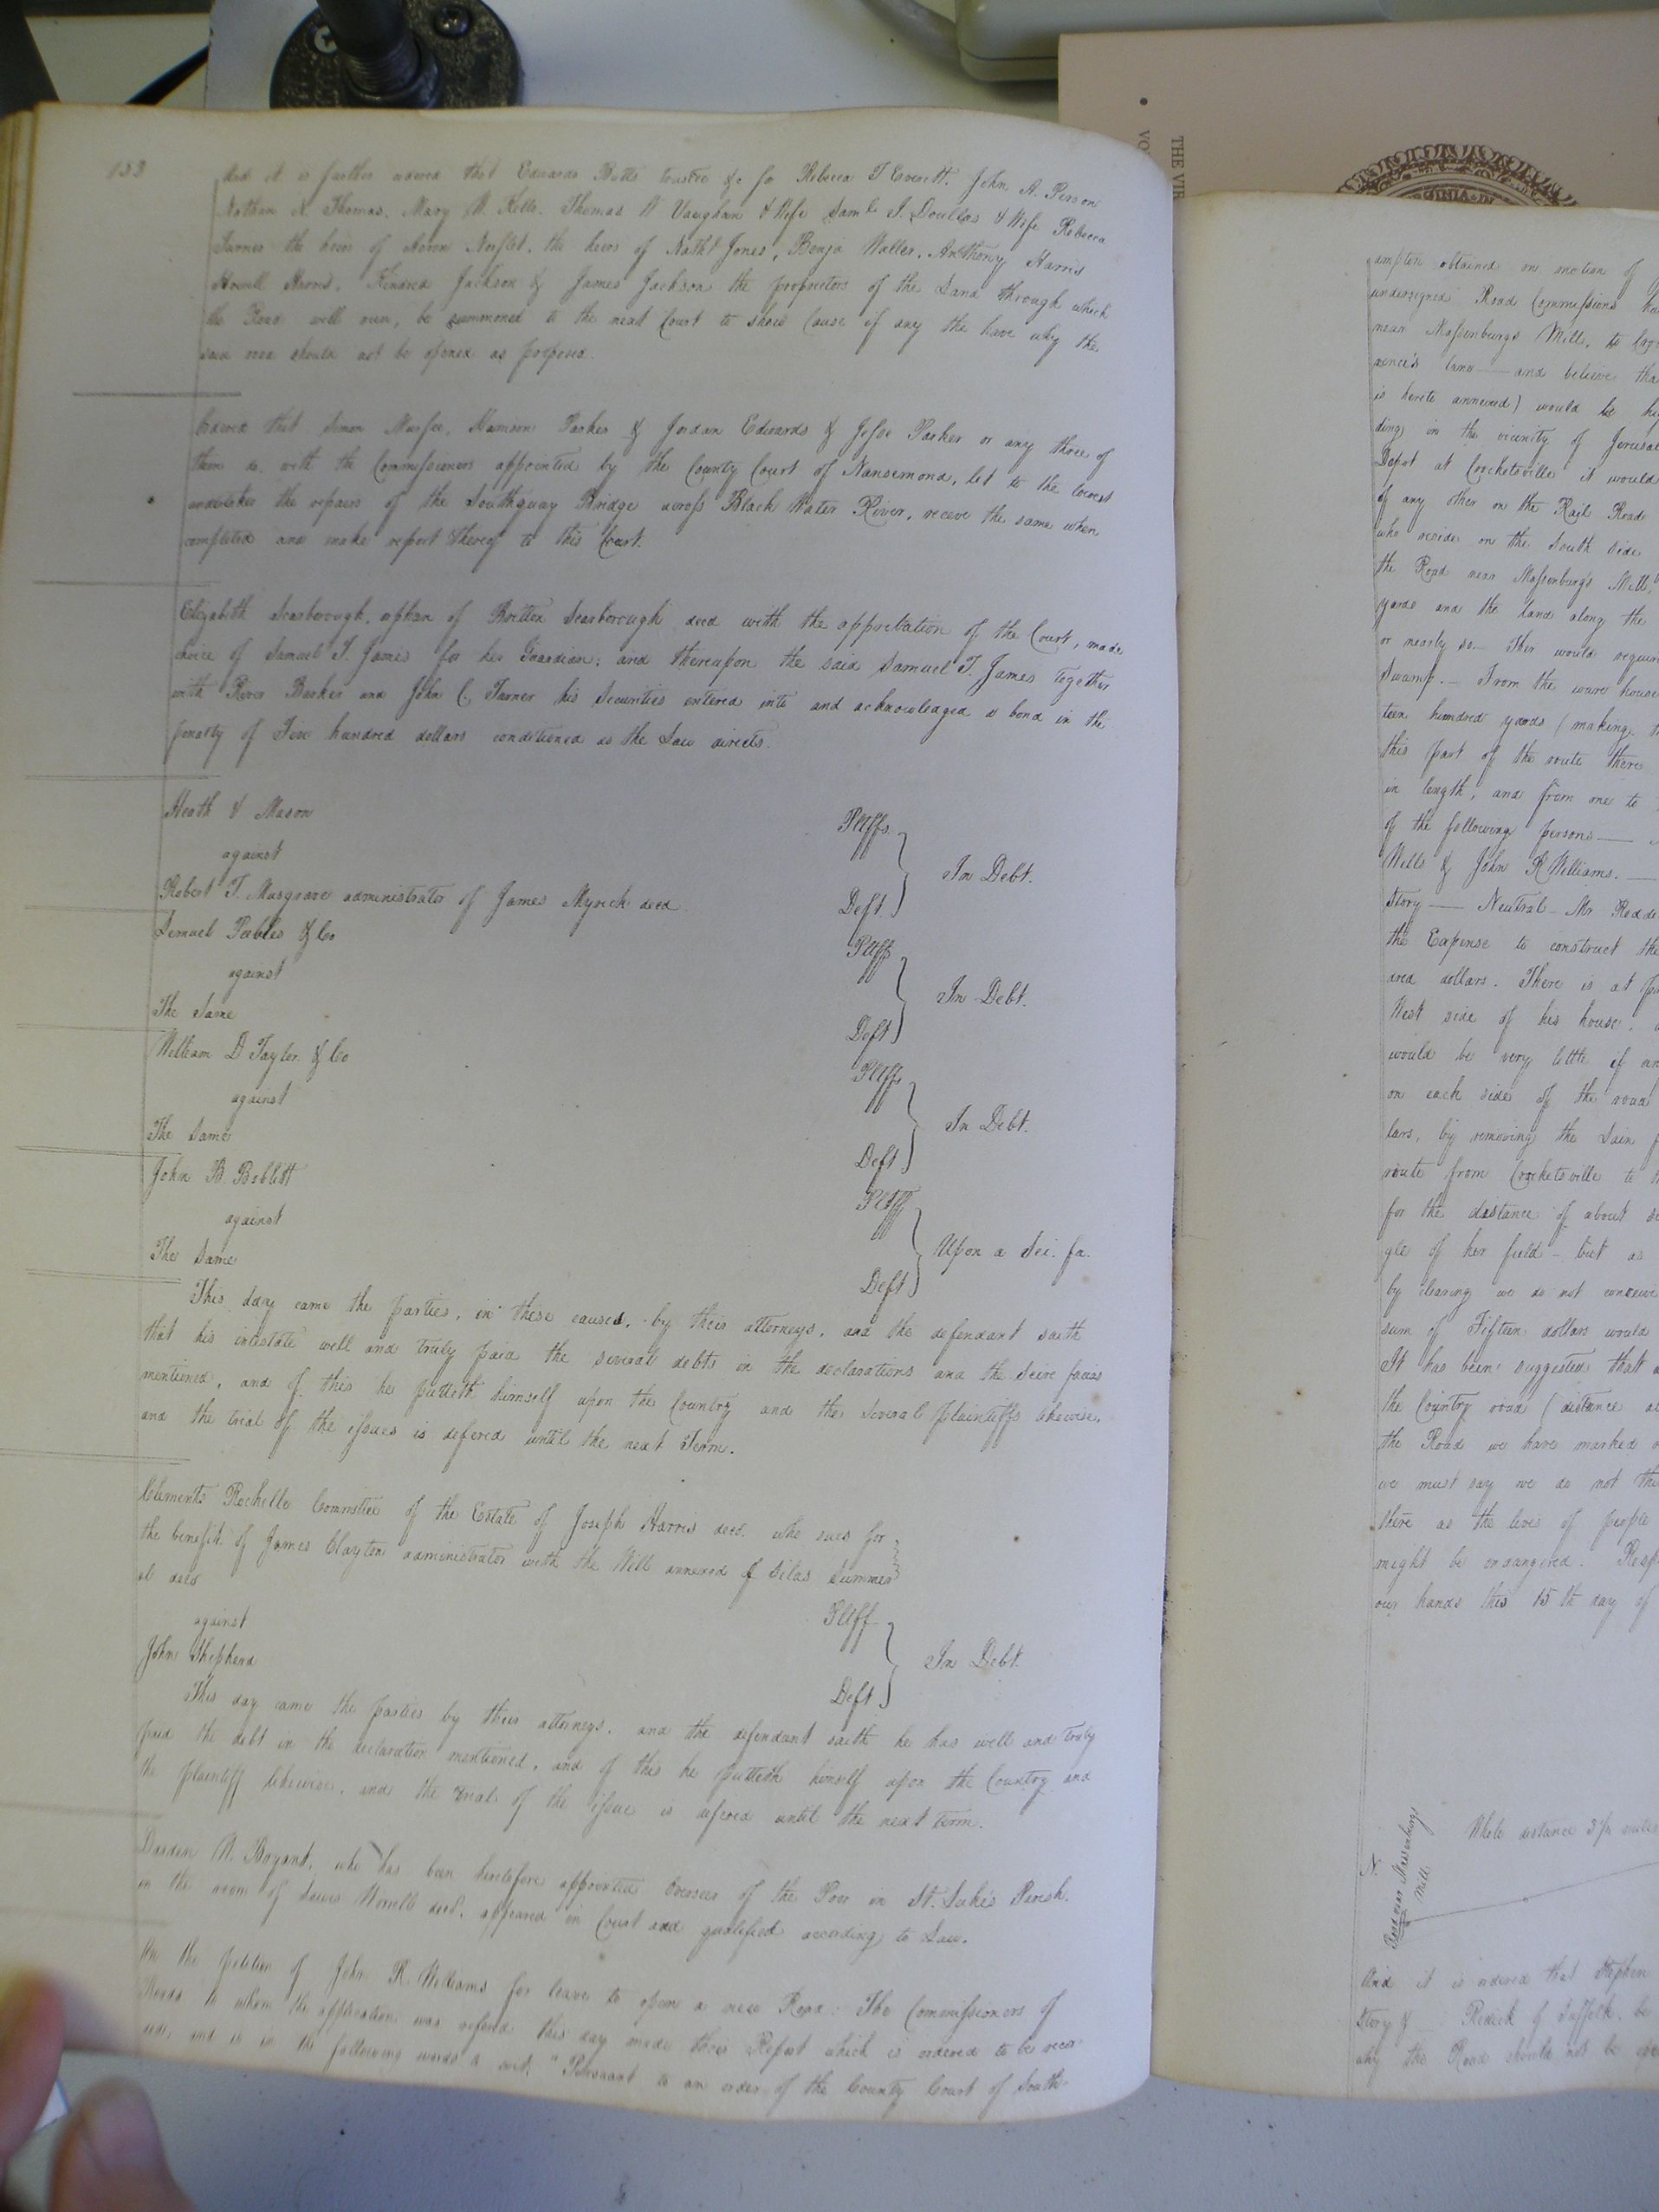 153
And it is further ordered that Edwards Butts trustee &c for Rebecca T Everett, John A. Person
Nathan Thomas, Mary W. Kello, Thomas Vaughan & Wife Saml J. Douglas & Wife Rebecca
Turner the heirs of Norfleet, the heirs of Nathl Jones, Benja Waller, Anthony Harris
Howell Harris, Kindred Jackson & James Jackson the proprietors of the Land through which
the Road will run, be summoned to the next Court to shew Cause if any the have why the
said road should not be opened as proposed.
Ordered that Simon Murfee, Parker & Jordan Edwards & Jesse Parker or any three of
them do, with the Commissioners appointed by the County Court of Nansemond, let to the lowest
undertaker the repairs of the Southquay Bridge across Black Water River, receve the same when
completed and make report thereof to this Court.
Elizabeth Scarborough, orphan of Britton Scarborough decd with the approbation of the Court, made
choice of Samuel T. James for her Guardian; and thereupon the said Samuel T. James together
with River Barker and John C. Turner his Securities entered into and acknowledged a bond in the
penalty of Five hundred dollars conditioned as the Law directs.
Heath & Mason Pltffs
against In Debt.
Robert T. Musgrave administrator of James Myrick decd. Deft.
Lemuel Peebles & Co Pltffs
against In Debt.
The Same Deft
William D Taylor & Co Pltffs
against In Debt.
The Same Deft
John B. Boblett Pltff
against Upon a Sci. fa.
The Same Deft
This day came the parties, in these causes, by their attorneys, and the defendant saith
that his intestate well and truly paid the several debts in the declarations and the Scire facias
mentioned, and of this he putteth himself upon the Country and the several plaintiffs likewise,
and the trial of the issues is defered until the next Term.
Clements Rochelle Committee of the Estate of Joseph Harris decd. who sues for
the benefit of James Clayton administrator with the Will annexed of Silas Summer
el decd
against Pltff
John Shepherd In Debt.
Deft
This day came the parties by their attorneys, and the defendant saith he has well and truly
paid the debt in the declaration mentioned, and of this he putteth himself upon the Country and
the plaintiff likewise, and the trial of the issue is defered until the next term.
Darden W. Bryant, who has been heretofore appointed Overseer of the Poor in St. Luke's Parish
in the room of Lewis Worrell decd, appeared in Court and qualified according to Law.
On the petition of John R. Williams for leave to open a new Road: The Commissioners of
Roads to whom the application was refered this day made their Report which is ordered to be recor
ded, and is in the following words to wit: "Pursuant to an order of the County Court of South-
THE VIR
ampton obtained on motion of
undersigned Road Commissions
near Massenburgs Mill, to
land — and believe tha
is hereto annexed) would be
ding in the vicinity of Jerusal
Depot at Crocketsville it would
of any other on the Rail Road
who reside on the South Side
the Road near Massenburg's Mill,
yards and the land along the
or nearly so— This would requir
Swamp.— From the ware house
teen hundred yards (making
this part of the route there
in length, and from one to
of the following persons —
Wills & John R Williams. —
Story — Neutral — Mr Redde
the Expense to construct the
dred dollars. There is at
West side of his house,
would be very little if an
on each side of the road
lars, by removing the
route from Crocketsville to
for the distance of about
gle of her field — but as
by clearing we do not conceive
sum of Fifteen dollars would
It has been suggested that
the Country road (distance
the Road we have marked
we must say we do not
there as the lives of people
might be endangered. Resp
our hands this 15th day of
Whole distance 3 1/4 miles
N.
Road near Massenburgs
Mill
And it is ordered that Stephen
Story & Redick of Suffolk, be
why the Road should not be ope